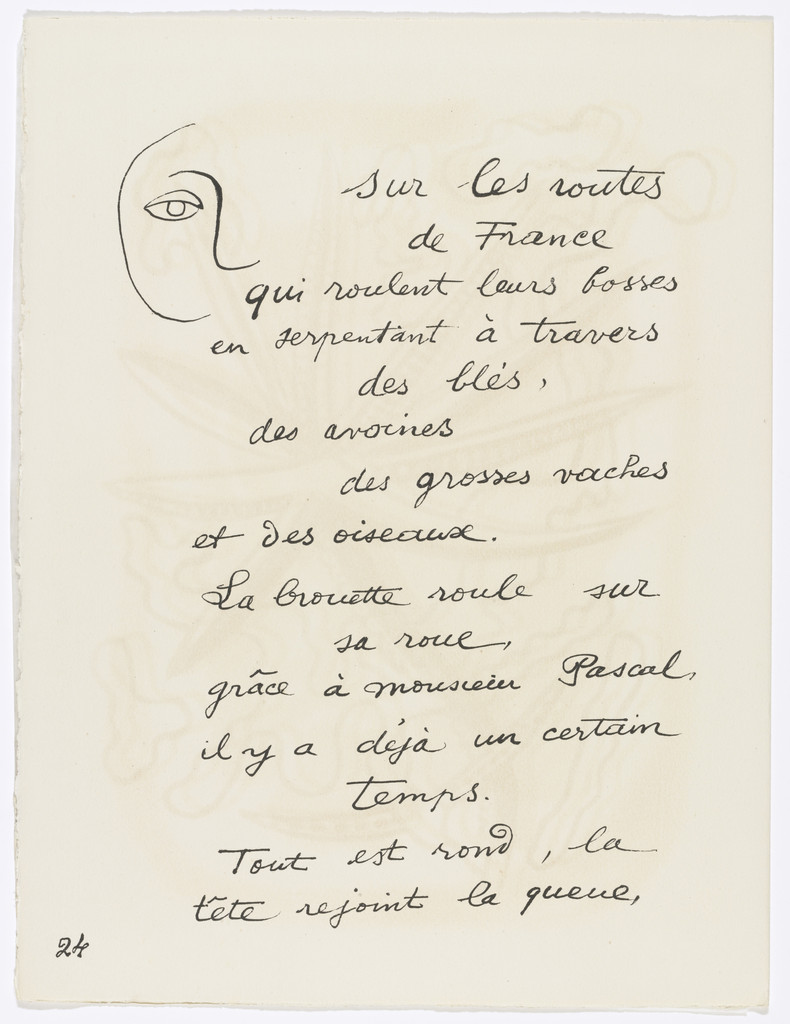 sur les routes
de France
qui roulent leurs bosses
en serpentant à travers
des blés,
des avoines
des grosses vaches
et des oiseaux.
La brouette roule sur
sa roue,
grâce à monsieur Pascal,
il y a déjà un certain
temps.
Tout est rond, la
tête rejoint la queue,
24